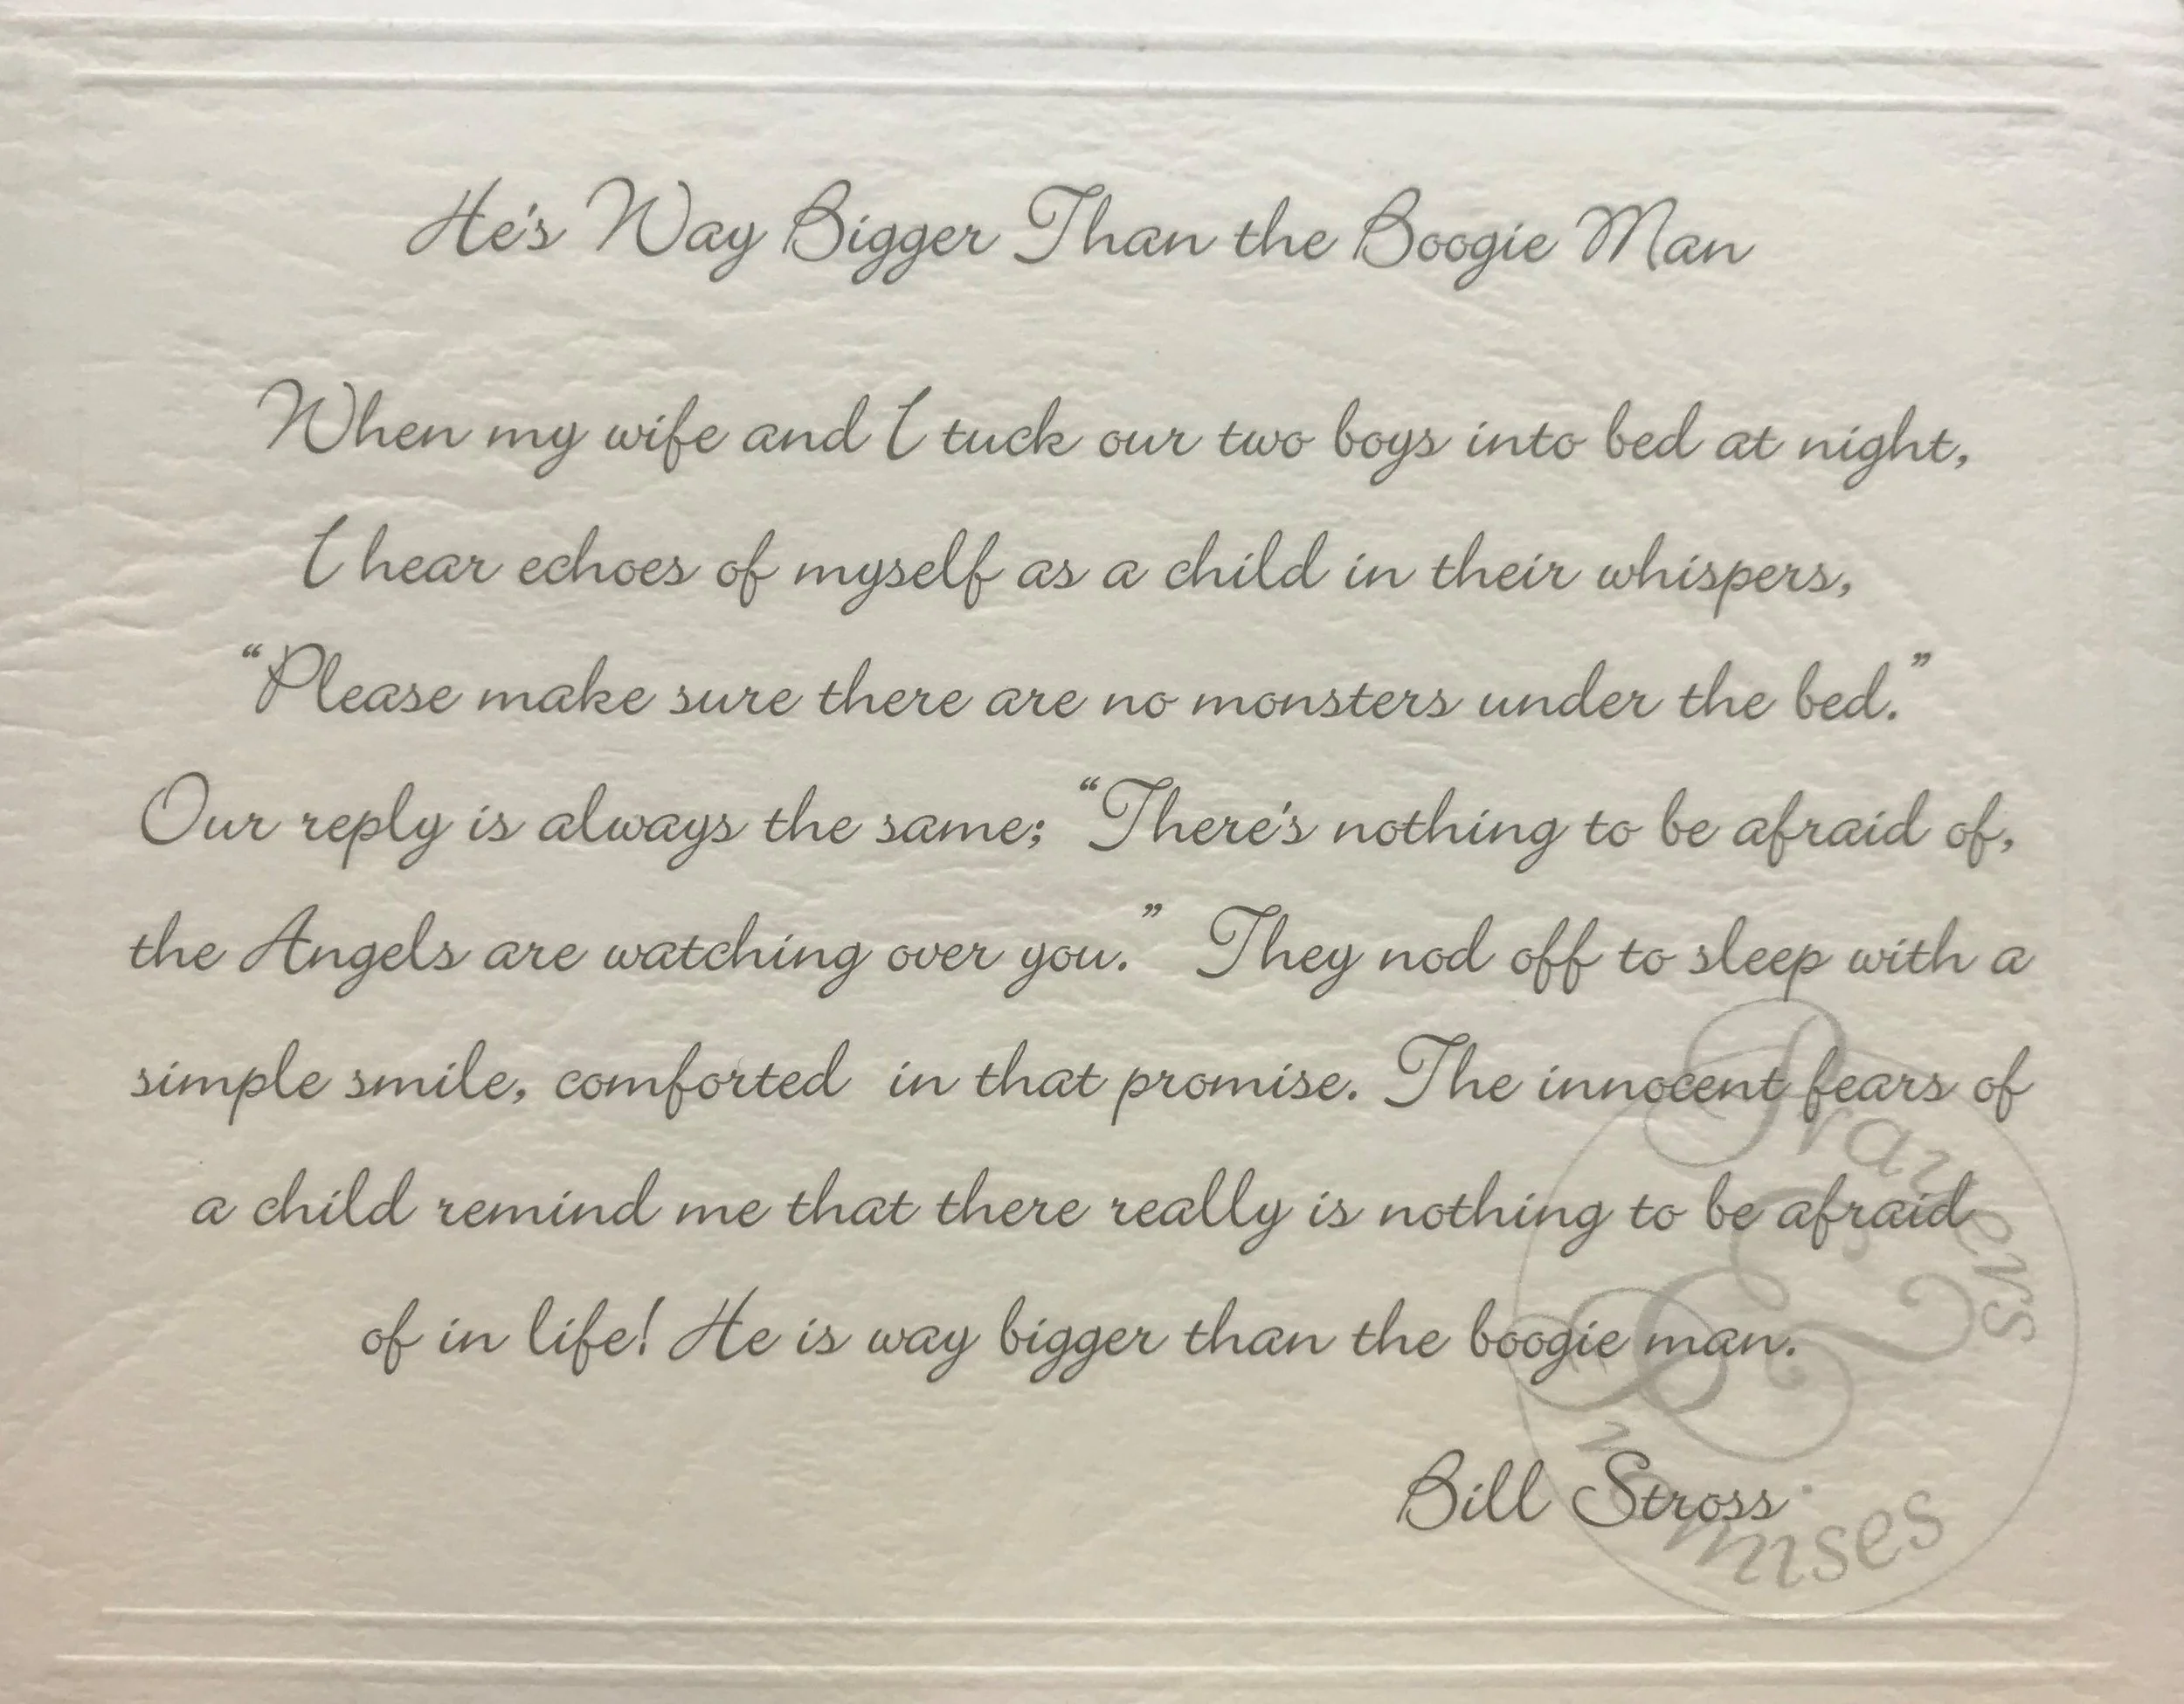 He's Way Bigger Than the Boogie Man
When my wife and I tuck our two boys into bed at night,
I hear echoes of myself as a child in their whispers,
“Please make sure there are no monsters under the bed.”
Our reply is always the same; “There's nothing to be afraid of,
the Angels are watching over you.” They nod off to sleep with a
simple smile, comforted in that promise. The innocent fears of
a child remind me that there really is nothing to be afraid
of in life! He is way bigger than the boogie man.
Bill Stross
Prayers
&